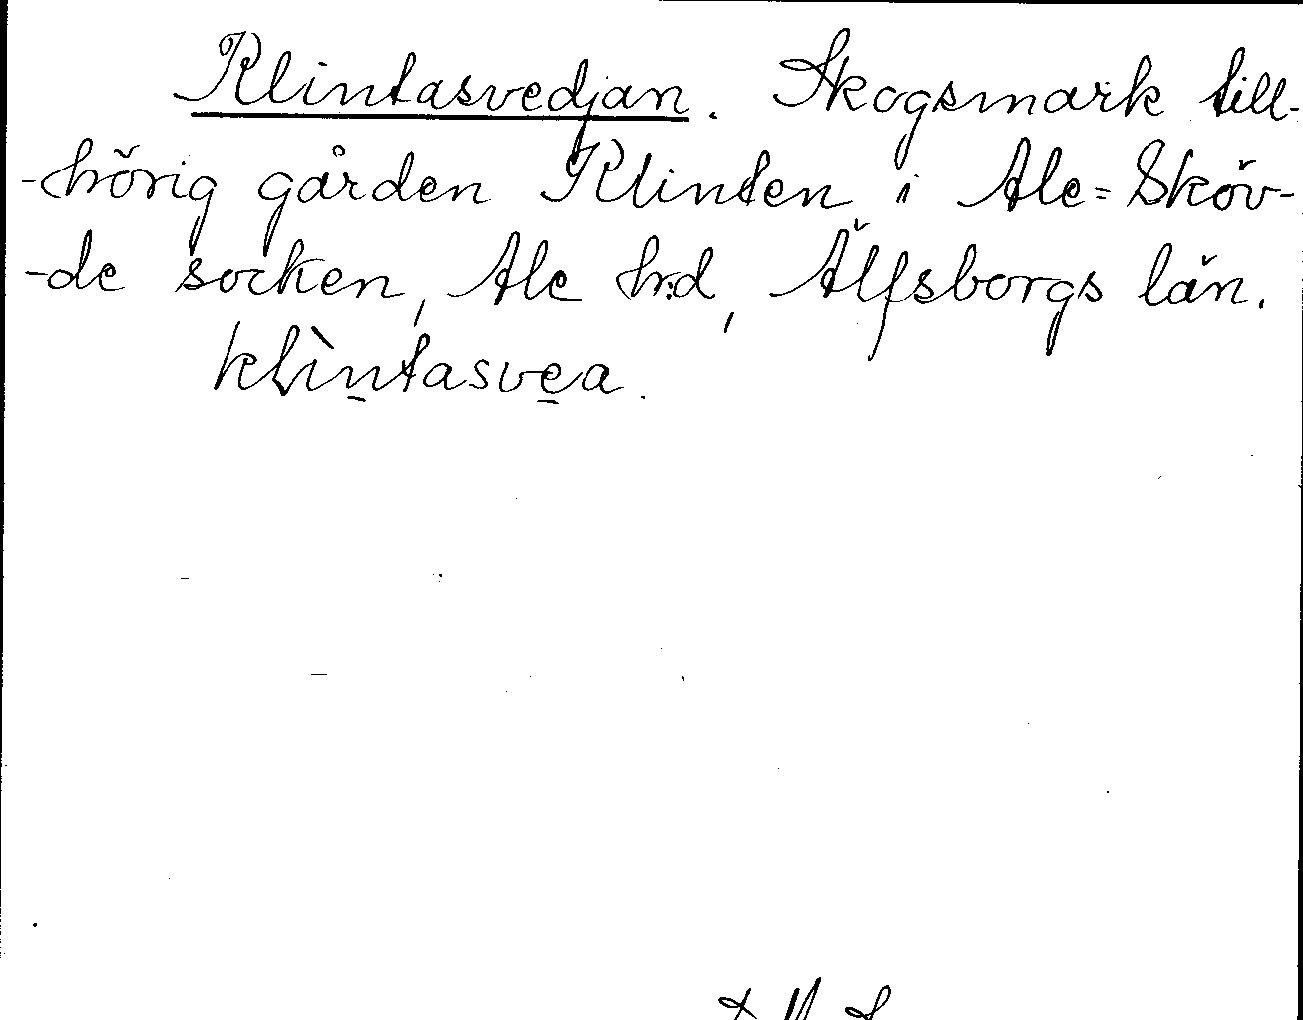 Klintasvedjan. Skogsmark till-
-hörig gården Klinten i Ale=Sköv-
-de socken, Ale h:d, Älfsborgs län.
klìntasvea.